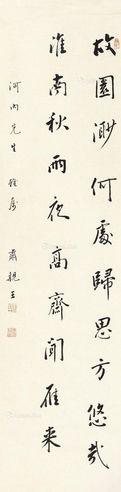 故園渺何處歸思方悠哉
淮南秋雨夜高齋聞雁来
河内先生雅屬
肅親王